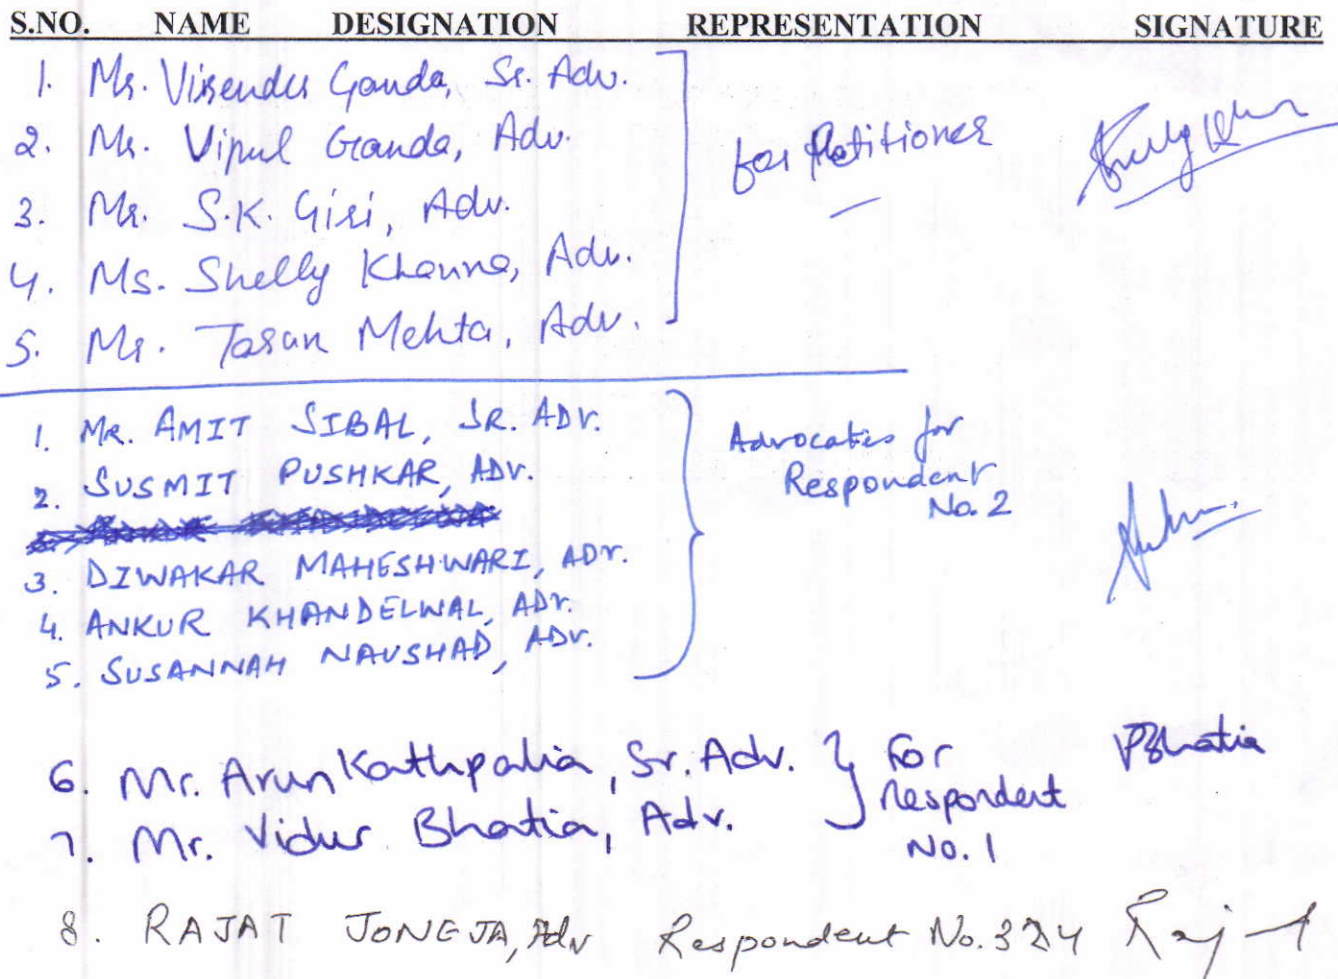 S.NO. NAME DESIGNATION REPRESENTATION SIGNATURE
1. Mr. Virender Ganda, Sr. Adv.
2. Mr. Vipul Ganda, Adv.
3. Mr. S.K. Giri, Adv.
4. Ms. Shelly Khanna, Adv.
5. Mr. Tarun Mehta, Adv.
for Petitioner
1. MR. AMIT SIBAL, SR. ADV.
2. SUSMIT PUSHKAR, ADV.
3. DIWAKAR MAHESHWARI, ADV.
4. ANKUR KHANDELWAL, ADV.
5. SUSANNAH NAUSHAD, ADV.
Advocates for
Respondent
No. 2
6. Mr. Arun Kathpalia, Sr. Adv.
7. Mr. Vidur Bhatia, Adv.
For
Respondent
No. 1
VBhatia
8. RAJAT JONEJA, Adv Respondent No. 3 & 4